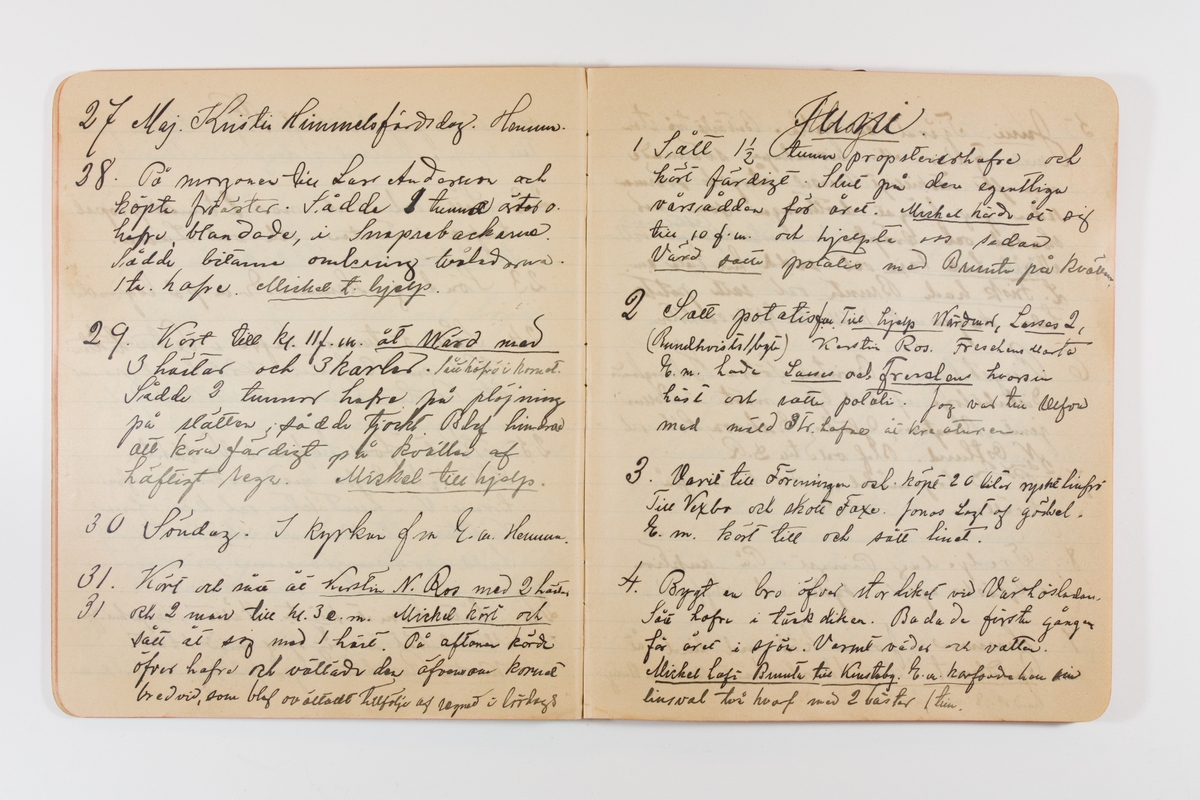 27 Maj. Kristi Himmelsfärdsdag. Hemma.
28. På morgonen till Lars Andersson och
köpte Sådde 1 tunna o.
hafre, blandade, i Snaprebackarne.
Sådde omkring
1 tu. hafre. Mickel t. hjelp.
29. Kört till kl. 11 f.m. åt Wärd med
3 hästar och 3 karlar.
Sådde 2 tunnor hafre på plöjning
på slätten, sådde tjockt. Blef hindrad
att köra färdigt på kvällen af
häftigt regn. Mickel till hjelp.
30 Söndag. I kyrkan f m E. m. Hemma.
31. Kört och sått åt Kerstin N. Ros med 2 hästar
31 och 2 man till kl. 3 e. m. Mickel kört och
sått åt sig med 1 häst. På aftonen körde
öfver hafre och vältade den äfvensom kornet
bredvid, som blef ovältadt tillfölje af regnet i lördags
Juni
1 Sått 1½ tunna propsteierhafre och
kört färdigt. Slut på den egentliga
vårsådden för året. Mickel körde åt sig
till 10 f.m. och hjelpte oss sedan
Värd satte potatis med Brunte på kvällen.
2 Satt potatis f.m. Till hjelp Lasses 2,
Kerstin Ros. Freschens
E. m. hade Lasses och Freschens hvarsin
häst och satte potatis. Jag var till
med mäld 3 tr. hafre åt kreaturen
3. Varit till Föreningen och köpt 20 liter ryskt linfrö
Till Vexbo och skott Faxe. Jonas Lagt af gödsel.
E. m. kört till och sått linet.
4. Bygt en bro öfver stordiket vid Vårhösladan.
Sått hafre i täckdiken. Badade första gången
för året i sjön. Varmt väder och vatten.
Mickel Brunte till E. m.
två hvarf med 2 hästar 1 tim.